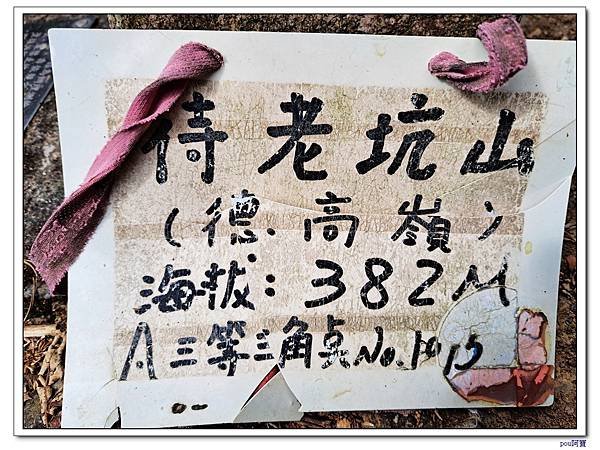 待老坑山
(德高嶺)
海拔:382M
三等三角点No.1015
pou阿寶